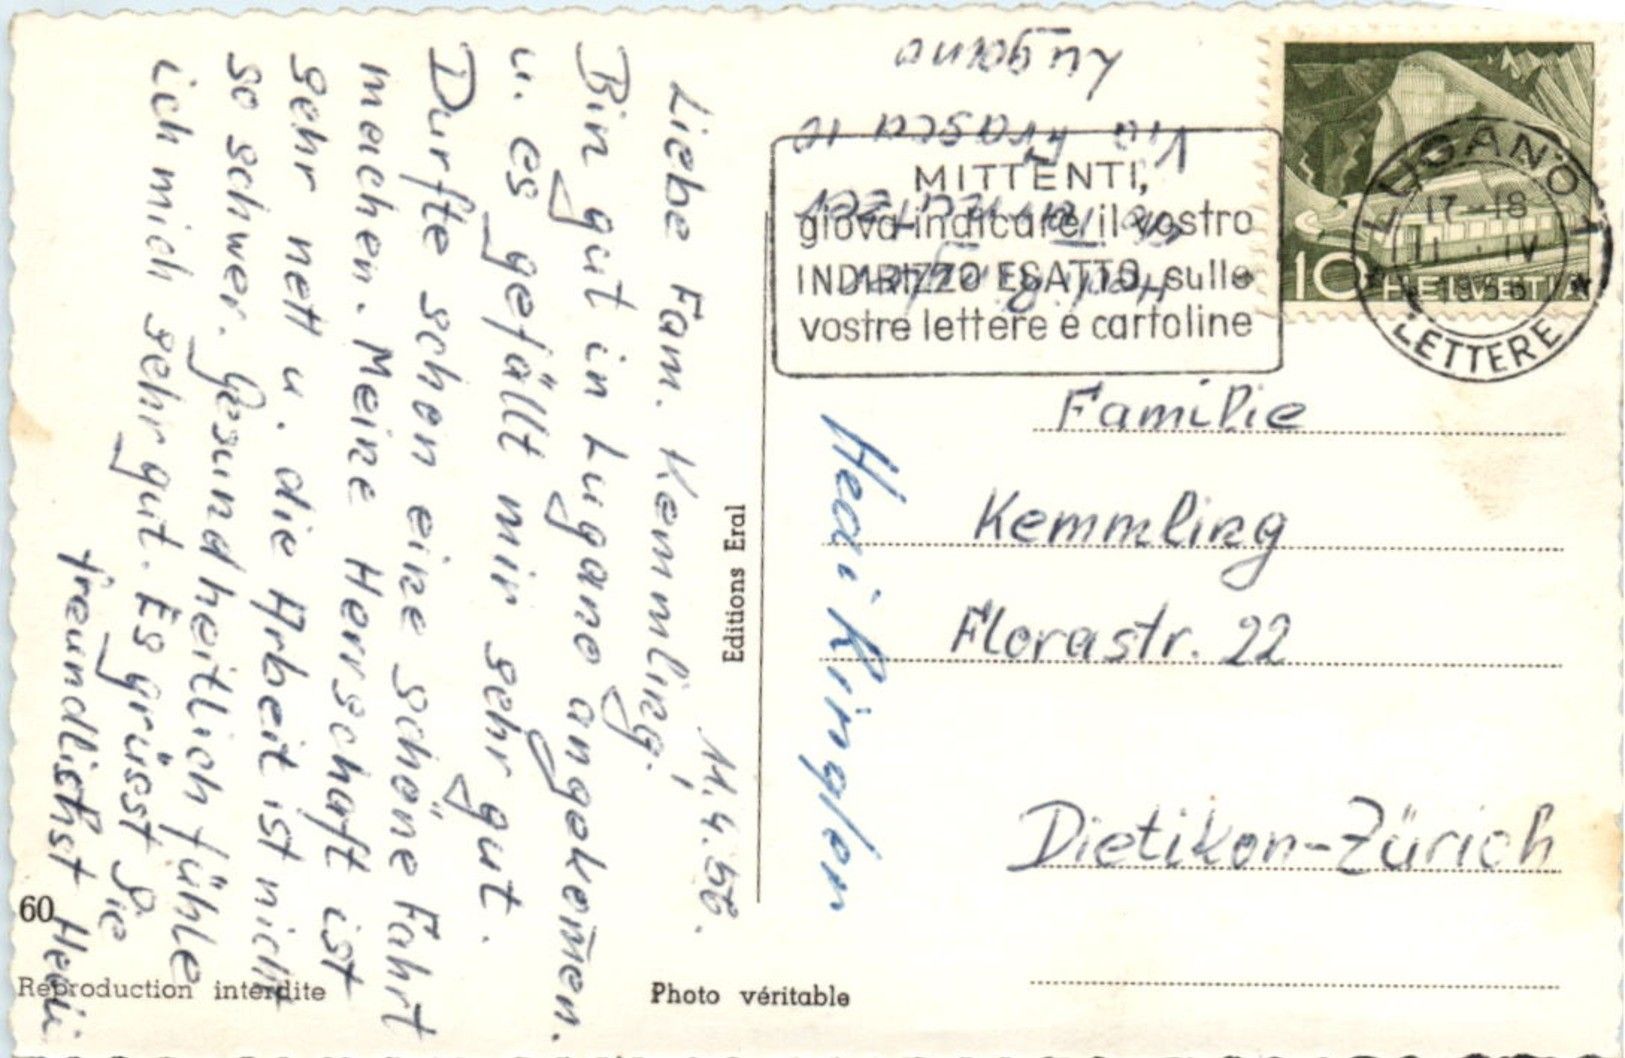 11.4.56.
Liebe Fam. Kemmling,
Bin gut in Lugano angekom̄en.
u. es gefällt mir sehr gut.
Durfte schon eine schöne Fahrt
machen. Meine Herrschaft ist
sehr nett u. die Arbeit ist nicht
so schwer. Gesundheitlich fühle
ich mich sehr gut. Es grüsst Sie
freundlichst Hedi
Hedi Ringler
Via Frasca 10
Lugano
MITTENTI,
giova indicare il vostro
INDIRIZZO ESATTO sulle
vostre lettere e cartoline
LUGANO 1
17-18
11. IV
1956
LETTERE
10 HELVETIA
Familie
Kemmling
Florastr. 22
Dietikon-Zürich
Editions Eral
60
Reproduction interdite
Photo véritable